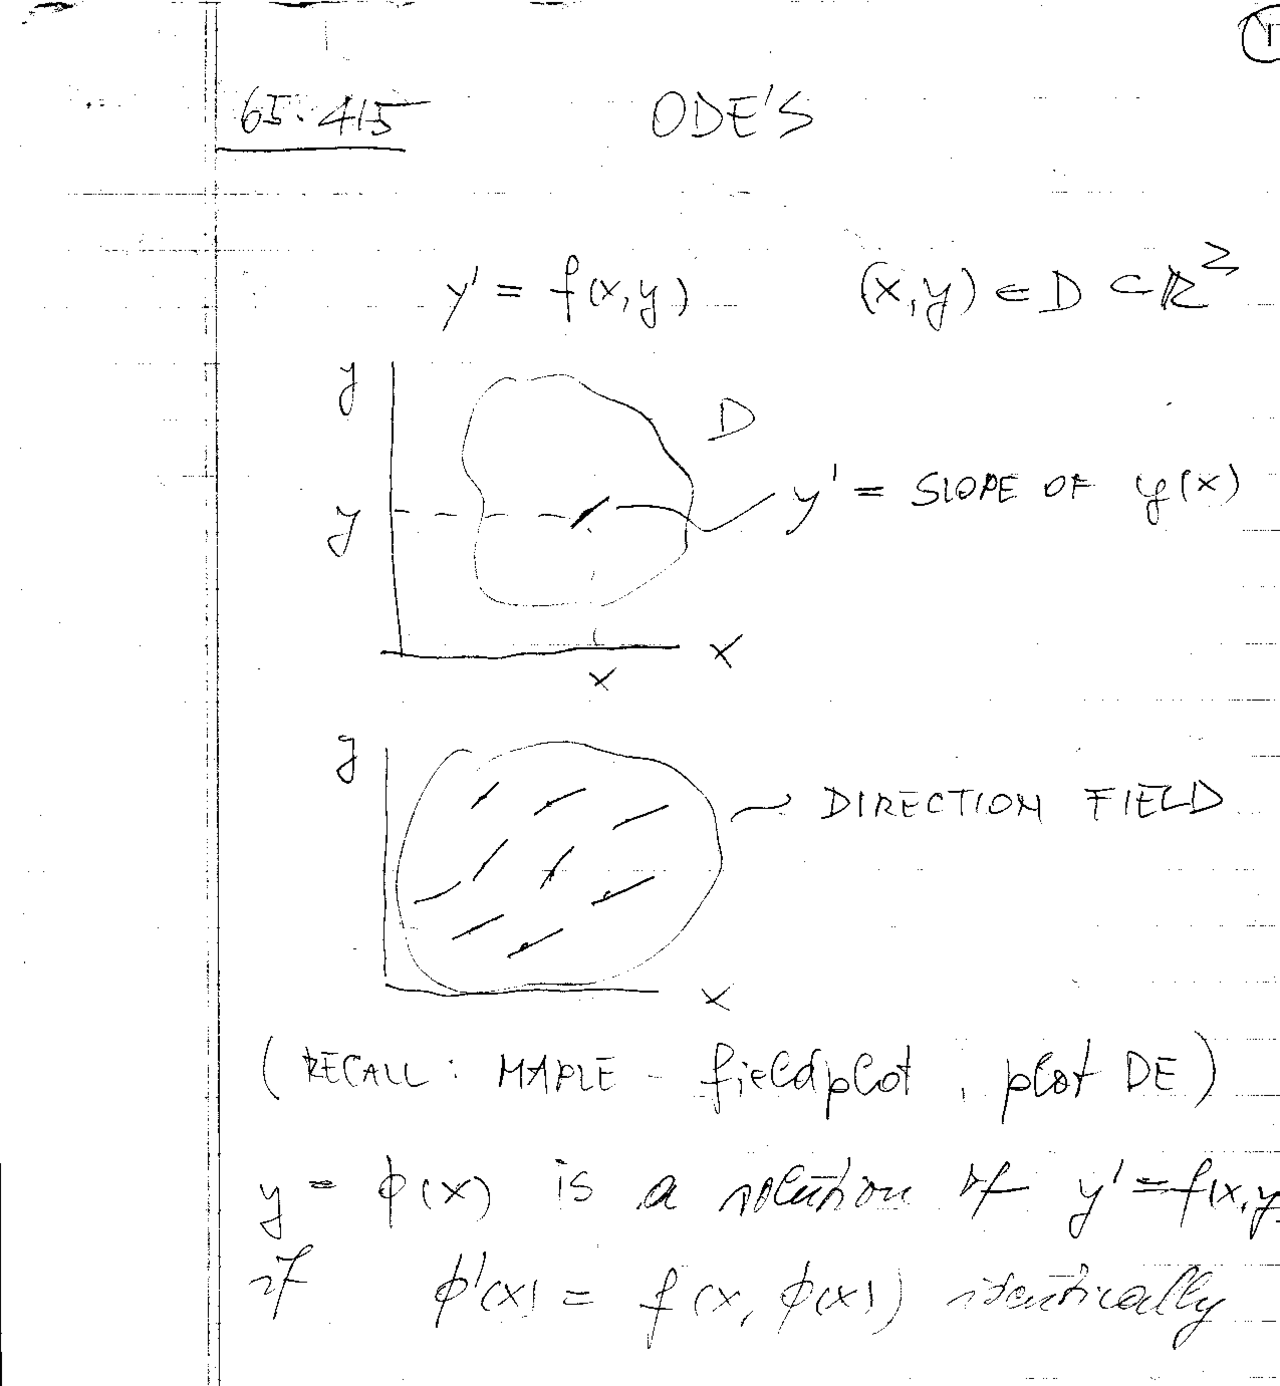 1
65.415 ODE'S
y' = f(x,y) (x,y) ∈ D ⊂ ℝ²
y
D
y y' = SLOPE OF y(x)
x
x
y
DIRECTION FIELD
x
(RECALL: MAPLE - fieldplot, plot DE)
y = φ(x) is a solution of y' = f(x,y
if φ'(x) = f(x, φ(x)) identically